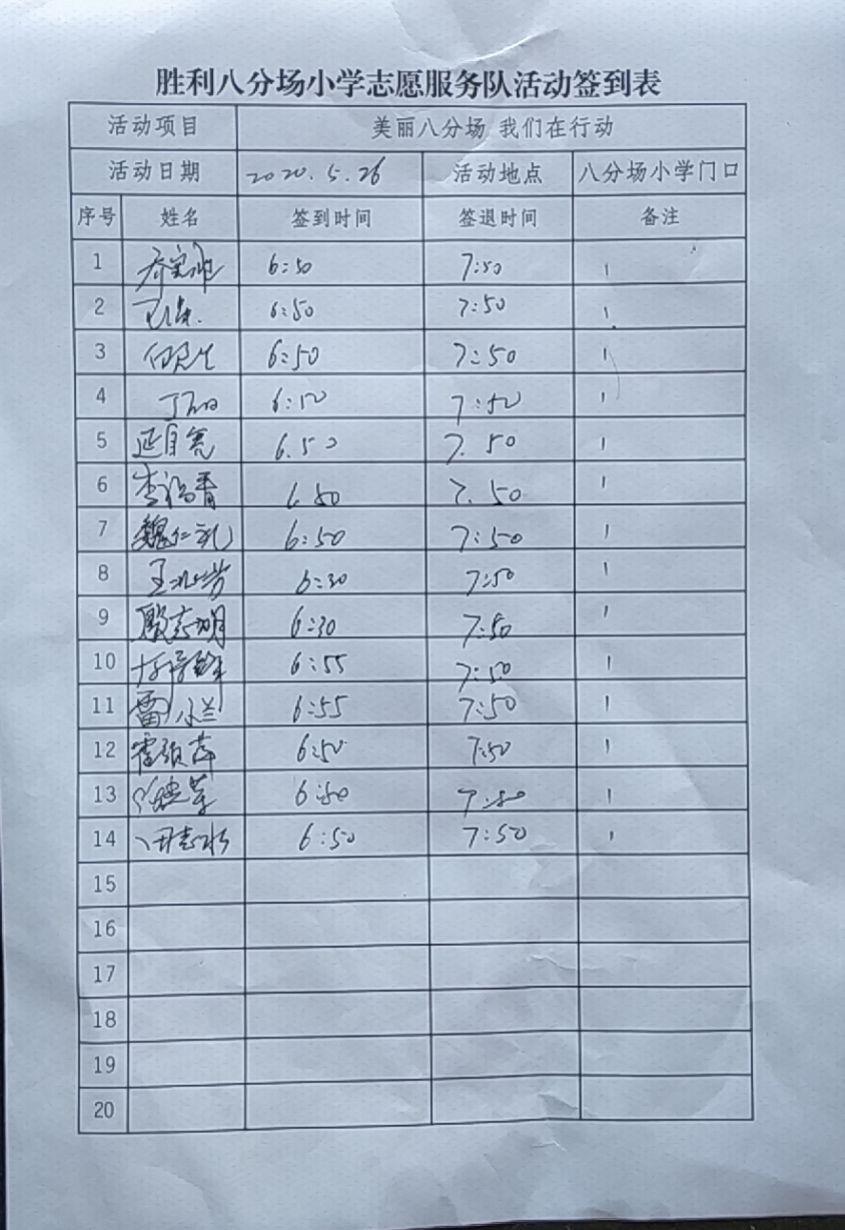 胜利八分场小学志愿服务队活动签到表
活动项目 美丽八分场 我们在行动
活动日期 2020.5.26 活动地点 八分场小学门口
序号 姓名 签到时间 签退时间 备注
1 6:50 7:50 1
2 6:50 7:50 1
3 6:50 7:50 1
4 6:50 7:50 1
5 延自亮 6.50 7.50 1
6 6.50 7.50 1
7 魏仁礼 6:50 7:50 1
8 6:30 7:50 1
9 殷志明 6:30 7:50 1
10 6:55 7:50 1
11 雷小兰 6:55 7:50 1
12 6:50 7:50 1
13 6:50 7:50 1
14 田志水 6:50 7:50 1
15
16
17
18
19
20